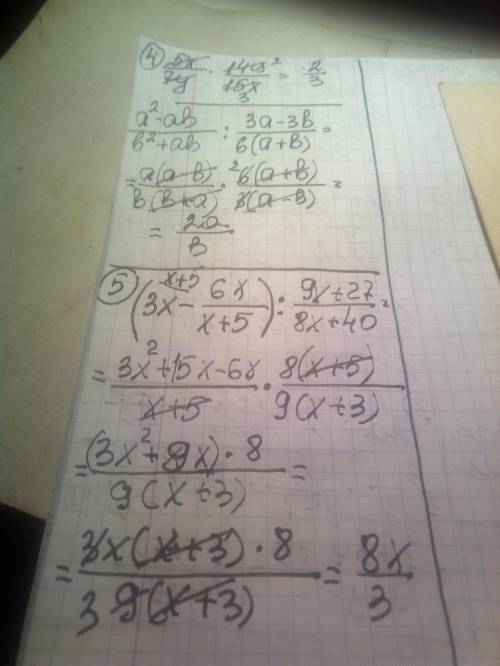 ④ 5x/7y · 14y²/15x 3 = 2/3
a²-ab/b²+ab : 3a-3b/6(a+b) =
= a(a-b)/b(b+a) · ²6(a+b)/3(a-b) =
= 2a/b
⑤ (3x^(x+5) - 6x/x+5) : 9x+27/8x+40 =
= 3x²+15x-6x/x+5 · 8(x+5)/9(x+3)
= (3x²+9x)·8/9(x+3) =
= 3x(x+3)·8/3 9(x+3) = 8x/3